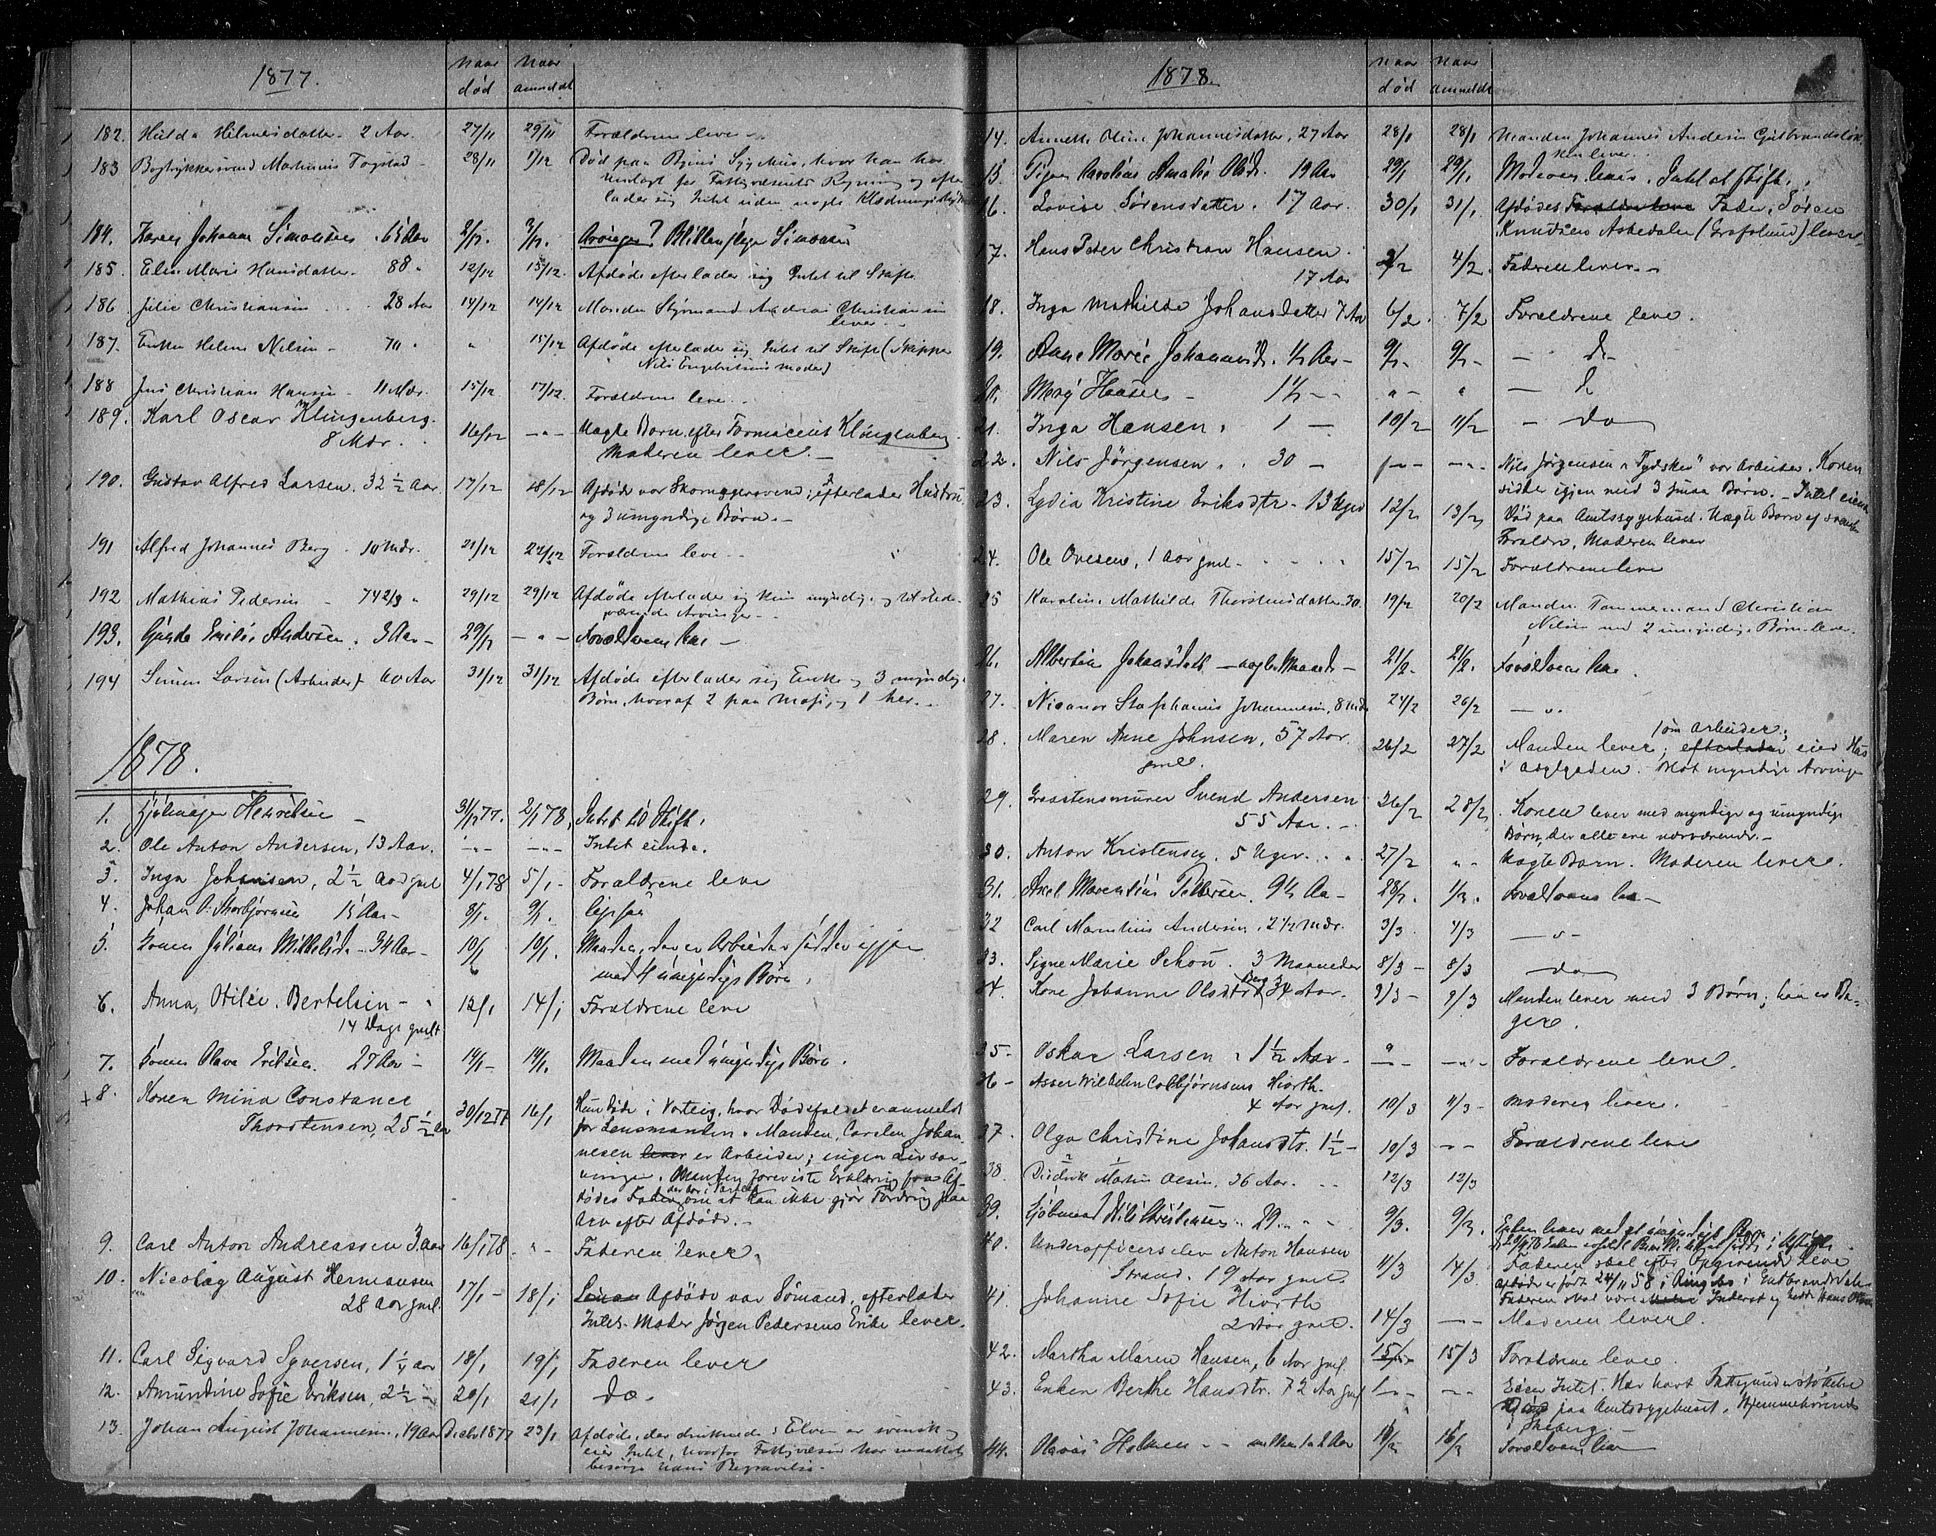 1877.
naar død
naar anmeldt
182. Hulda Hilmersdatter - 2 Aar. 27/11 29/11 Forældrene leve -
183 Bogtrykkersvend Martinius Fogstad - 28/11 1/12 Død paa Byens Sygehus, hvor han har
indlagt for Fattigvæsenets Regning og efter
lader sig Intet uden nogle Klædningsstykker
184. Karen Johanne Simonsen - 65 Aar 2/12. 3/12. Arvinger? Blikkenslager Simonsen
185. Elen Marie Hansdatter - 88 " 12/12 15/12. Afdøde efterlader sig Intet til Skifte
186 Julie Christiansen . . 28 Aar 14/12 14/12 Manden Styrmand Andreas Christiansen
lever . .
187. Enken Helene Nilsen - 70 " " 15/12 Afdøde efterlader sig Intet til Skifte (Skipper
Nils Engebretsens moder)
188 Jens Christian Hansen - 11 Mdr. 15/12 17/12. Forældrene leve -
189. Karl Oscar Klingenberg.
8 Mdr. 16/12 - " - Uægte Barn efter Farmaceut Klingenberg.
Moderen lever -
190. Gustav Alfred Larsen. 32 1/2 Aar 17/12 18/12 Afdøde var Skomagersvend; efterlader Hustru
og 3 umyndige Børn. -
191 Alfred Johannes Berg - 10 Mdr. 21/12 22/12 Forældrene leve . .
192 Mathias Pedersen - 74 2/3 " 29/12 29/12 Afdøde efterlader sig kun myndige og tilstede-
værende Arvinger. -
193. Gunda Emilie Andersen. 3 Aar - 29/12 - " - Forældrene leve -
194 Simen Larsen (Arbeider) - 60 Aar 31/12 31/12 Afdøde efterlader sig Enke og 3 myndige
Børn, hvoraf 2 paa Moss, og 1 her. -
1878.
1. Henriksen - 31/12 77. 2/1 78, Intet til Skifte.
2. Ole Anton Andersen, 13 Aar. - " - - " - Intet eiende.
3. Inga Johansen, 2 1/2 Aar gml 4/1 78 5/1 - Forældrene leve
4. Johan A. Thorbjørnsen 15 Aar - 8/1. 9/1. ligesaa
5. Konen Juliane Mikkelsd. - 34 Aar - 10/1 10/1. Manden, der er Arbeider sidder igjen
med 4 umyndige Børn.
6. Anna Otilie Bertelsen - "
14 Dage gmlt 12/1 14/1 Forældrene leve
7. Konen Olava Eriksen. 27 Aar - 14/1 - 14/1. Manden med umyndige Børn.
+ 8. Konen Mina Constance
Thorstensen, 25 1/2 Aar 30/12 77 16/1 Hun døde i Varteig, hvor Dødsfaldet er anmeldt
for Lensmanden. Manden, Carelen Johan-
nesen lever er Arbeider; ingen Livsar-
vinger. Manden foreviste Erklæring fra Af-
dødes Fader der bor i Varteig om at han ikke gjør Fordring paa
Arv efter Afdøde. -
9. Carl Anton Andreassen 3 Aar 16/1 78 . " Faderen lever.
10. Nicolay August Hermansen
28 Aar gml. 17/1 - 18/1 Afdøde var Sømand, efterlader
Intet. Moder Jørgen Pedersens Enke lever.
11. Carl Sigvard Syversen, 1 1/4 Aar 18/1 19/1 Faderen lever
12. Amundine Sofie Eriksen, 2 1/2 - 20/1 21/1 do -
13. Johan August Johannesen, 19 Aar Decbr 1877 23/1 Afdøde, der druknede i Elven er svensk,
eier Intet, hvorfor Fattigvæsenet har maattet
besørge hans Begravelse -
1878.
naar død
naar anmeldt
14. Annette Oline Johannesdatter, 27 Aar 28/1 28/1 Manden Johannes Andersen Gulbrandsløk
ken lever . .
15. Pigen Karoline Amalie Olsdr. 19 Aar 29/1 29/1. Moderen lever. Intet at skifte.
16. Lovise Sørensdatter. 17 Aar. 30/1 31/1 Afdødes Forældre leve Fader, Søren
Knudsen Askedalen (Grafslund) lever
17. Hans Peder Christian Hansen.
17 Aar 2/2 4/2 Faderen lever. -
18. Inga Mathilde Johansdatter 7 Aar 6/2. 7/2 Forældrene leve.
19. Anne Marie Johannesd. 1/2 Aar - 9/2 - 9/2 - - do -
20. Mary Hansen - 1 1/2 - - " - " - do
21. Inga Hansen. 1 - 10/2 11/2 - do
22. Nils Jørgensen . . 30 - - - - " - Nils Jørgensen "Tydsken" var Arbeider, Konen
sidder igjen med 3 smaa Børn. - Intet eiende
23. Lydia Kristine Eriksdtr. 13 Uger 12/2 13/2 Død paa Amtssygehuset. Uægte Barn af svenske
Forældre, Moderen lever
24. Ole Ovesen, 1 Aar gml. - . . . . 15/2 15/2 Forældrene leve
25 Karoline Mathilde Thorstensdatter 30. 19/2 20/2 Manden Tømmermand Christian
Nilsen med 2 umyndige Børn lever.
26. Albertine Johansdatt - Maaned - 21/2. 21/2. Forældrene leve.
27. Nicanor Stephanus Johannesen, 8 Mdr 24/2 26/2 - " -
28. Maren Anne Johnsen, 57 Aar
gml. 26/2 27/2 Manden lever, som Arbeider; efterlader eied Hus
i Aaslgaden. Med myndige Arvinger
29. Graastensmurer Svend Andersen
55 Aar. - . 26/2 28/2 Konen lever med myndige og umyndige
Børn, der alle ere nærværende. -
30. Anton Kristensen. 5 Uger . . . 27/2 " . Uægte Barn. Moderen lever.
31. Axel Marentius Pettersen, 9 1/2 Aa - 28/2. 1/3. Forældrene leve -
32 Carl Marelius Andersen, 2 1/2 Mdr. 3/3. 4/3 - " -
33. Signe Marie Schou. 3 Maaneder 8/3 - 8/3 do
34. Kone Johanne Olsdtr Berg 34 Aar. 9/3 - 9/3 Manden lever med 3 Børn; han er Ba-
ger.
35. Oskar Larsen . 1 1/2 Aar - - " - - " - Forældrene leve.
36 - Asser Vilhelm Colbjørnsens Hiorth.
4 Aar gml. 10/3 11/3 - Moderen lever.
37. Olga Christine Johansdtr. 1 1/2 - 10/3 - - Forældrene leve
38. Diedrik Martin Olsen, 36 Aar. . . 12/3 12/3
39. Sjømand Nils Christensen . . 29. . . 9/3. 9/3. Enken lever med et umyndigt Barn
40. Underofficerselev Anton Hansen
Strand. 19 Aar gml. 11/3 14/3. Faderen skal efter Opgivende leve
Afdøde er født 24/11 58 i Ringebo i Gudbrandsdalen
Faderen skal være Inderst og hedde Hans Olsen
41. Johanne Sofie Hiorth
2 Aar gml. 14/3 - - Moderen lever.
42. Martha Maren Hansen, 6 Aar gml 15/3 15/3 Forældrene leve.
43. Enken Berthe Hansdtr. 72 Aar gml - - - " - Eier Intet. Har havt Fattigunderstøttelse
Død paa Amtssygehuset. Hjemmehørende
i Skeberg. -
44. Olavus Holmen - - Aar 16/3. 16/3 Forældrene leve -